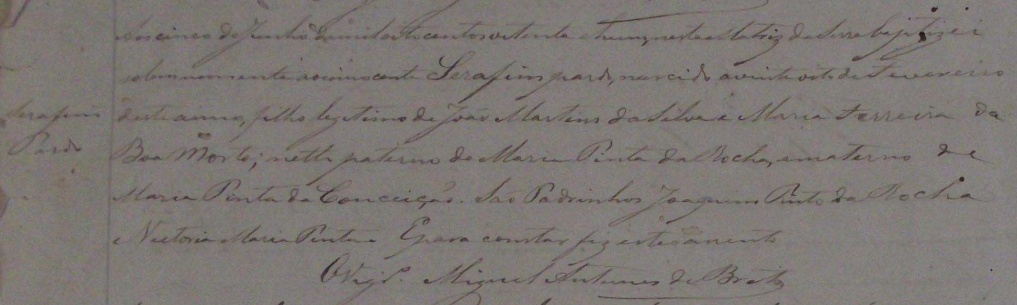 Aos cinco de Junho de mil oito centos oitenta e hum, nesta Matriz da Serra baptizei
solemnemente ao innocente Serafim pardo, nascido a vinte oito de Fevereiro
Serafim deste anno, filho legitimo de João Martins da Silva e Maria Ferreira da
Pardo Boa Morte; netto paterno de Maria Pinta da Rocha, e materno de
Maria Pinta da Conceição. São Padrinhos Joaquim Pinto da Rocha
e Victoria Maria Pinta. E para constar fiz este assento
O Vigr.º Miguel Antunes de Brito